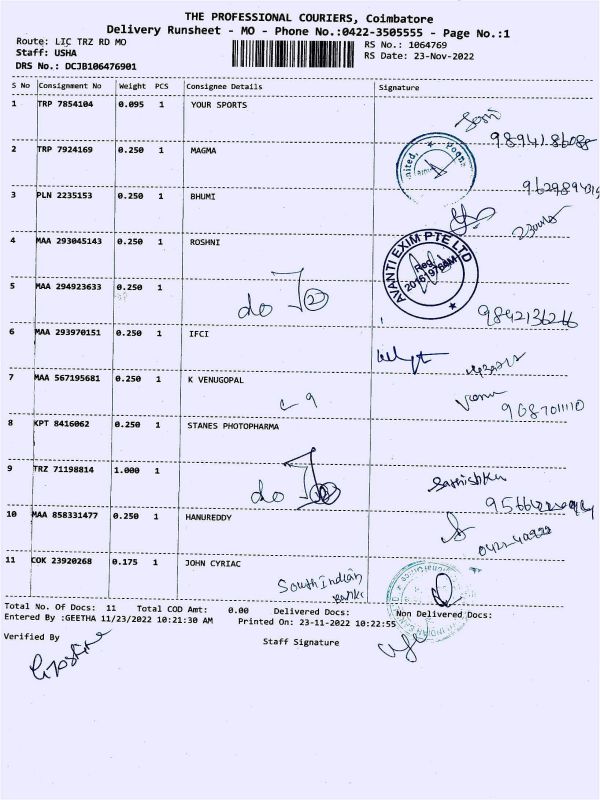 THE PROFESSIONAL COURIERS, Coimbatore
Delivery Runsheet - MO - Phone No.:0422-3505555 - Page No.:1
Route: LIC TRZ RD MO
RS No.: 1064769
Staff: USHA
RS Date: 23-Nov-2022
DRS No.: DCJB106476901
S No Consignment No Weight PCS Consignee Details Signature
1 TRP 7854104 0.095 1 YOUR SPORTS
9894186088
2 TRP 7924169 0.250 1 MAGMA
3 PLN 2235153 0.250 1 BHUMI
4 MAA 293045143 0.250 1 ROSHNI
AVANTI EXIM PTE LTD
5 MAA 294923633 0.250 1
do
9842136266
6 MAA 293970151 0.250 1 IFCI
7 MAA 567195681 0.250 1 K VENUGOPAL
9087011110
8 KPT 8416062 0.250 1 STANES PHOTOPHARMA
9 TRZ 71198814 1.000 1
do
10 MAA 858331477 0.250 1 HANUREDDY
11 COK 23920268 0.175 1 JOHN CYRIAC
South Indian
Bank
Total No. Of Docs: 11 Total COD Amt: 0.00 Delivered Docs: Non Delivered Docs:
Entered By :GEETHA 11/23/2022 10:21:30 AM Printed On: 23-11-2022 10:22:55
Verified By Staff Signature